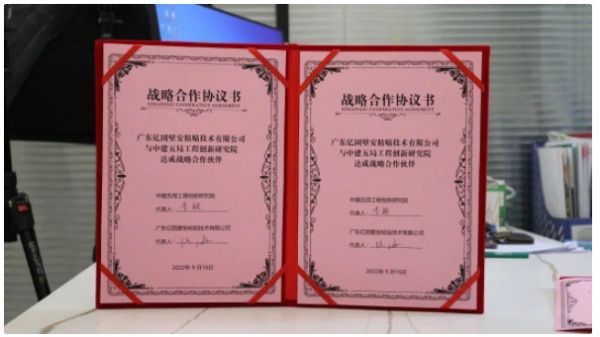 战略合作协议书
STRATEGIC COOPERATION AGREEMENT
广东亿固壁安粘贴技术有限公司
与中建五局工程创新研究院
达成战略合作伙伴
中建五局工程创新研究院
代表人:
广东亿固壁安粘贴技术有限公司
代表人:
2022年9月16日
战略合作协议书
STRATEGIC COOPERATION AGREEMENT
广东亿固壁安粘贴技术有限公司
与中建五局工程创新研究院
达成战略合作伙伴
中建五局工程创新研究院
代表人:
广东亿固壁安粘贴技术有限公司
代表人:
2022年9月16日